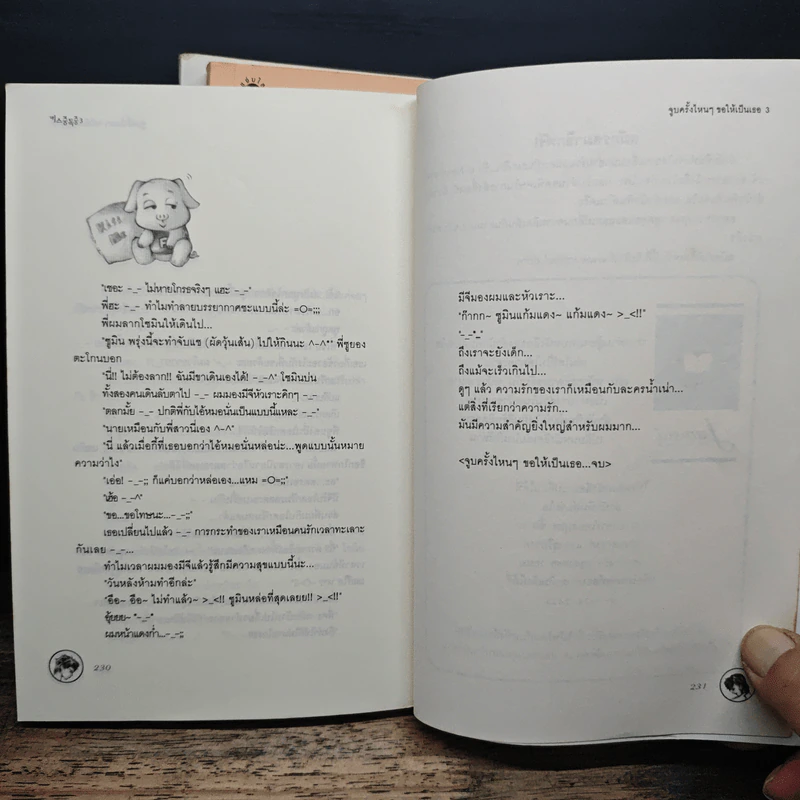 "เชอะ -_- ไม่หายโกรธจริงๆ แฮะ -_-"
พี่ฮะ -_- ทำไมทำลายบรรยากาศซะแบบนี้ล่ะ =O=;;;
พี่ผมลากโซมินให้เดินไป...
"ซูมิน พรุ่งนี้จะทำจับแช (ผัดวุ้นเส้น) ไปให้กินนะ ^-^" พี่ซูยอง
ตะโกนบอก
"นี่!! ไม่ต้องลาก!! ฉันมีขาเดินเองได้! -_-^" โซมินบ่น
ทั้งสองคนเดินลับตาไป -_- ผมมองมีจีหัวเราะคิกๆ -_-
"ตลกมั้ย -_- ปกติพี่กับไอ้หมอนั่นเป็นแบบนี้แหละ -_-"
"นายเหมือนกับพี่สาวนี่เอง ^-^"
"นี่ แล้วเมื่อกี้ที่เธอบอกว่าไอ้หมอนั่นหล่อน่ะ...พูดแบบนั้นหมาย
ความว่าไง"
"เอ่อ! -_-;; ก็แค่บอกว่าหล่อเอง...แหม =O=;;"
"เฮ้อ -_-^"
"ขอ...ขอโทษนะ...-_-;;"
เธอเปลี่ยนไปแล้ว -_- การกระทำของเราเหมือนคนรักเวลาทะเลาะ
กันเลย -_-...
ทำไมเวลาผมมองมีจีแล้วรู้สึกมีความสุขแบบนี้นะ...
"วันหลังห้ามทำอีกล่ะ"
"อือ~ อือ~ ไม่ทำแล้ว~ >_<!! ซูมินหล่อที่สุดเลยย!! >_<!!"
อุ้ยยย~ "-_-"
ผมหน้าแดงก่ำ...-_-;;
230
จูบครั้งไหนๆ ขอให้เป็นเธอ 3
มีจีมองผมและหัวเราะ...
"ก๊ากก~ ซูมินแก้มแดง~ แก้มแดง~ >_<!!"
"-_-"_"
ถึงเราจะยังเด็ก...
ถึงแม้จะเร็วเกินไป...
ดูๆ แล้ว ความรักของเราก็เหมือนกับละครน้ำเน่า...
แต่สิ่งที่เรียกว่าความรัก...
มันมีความสำคัญยิ่งใหญ่สำหรับผมมาก...
<จูบครั้งไหนๆ ขอให้เป็นเธอ...จบ>
231